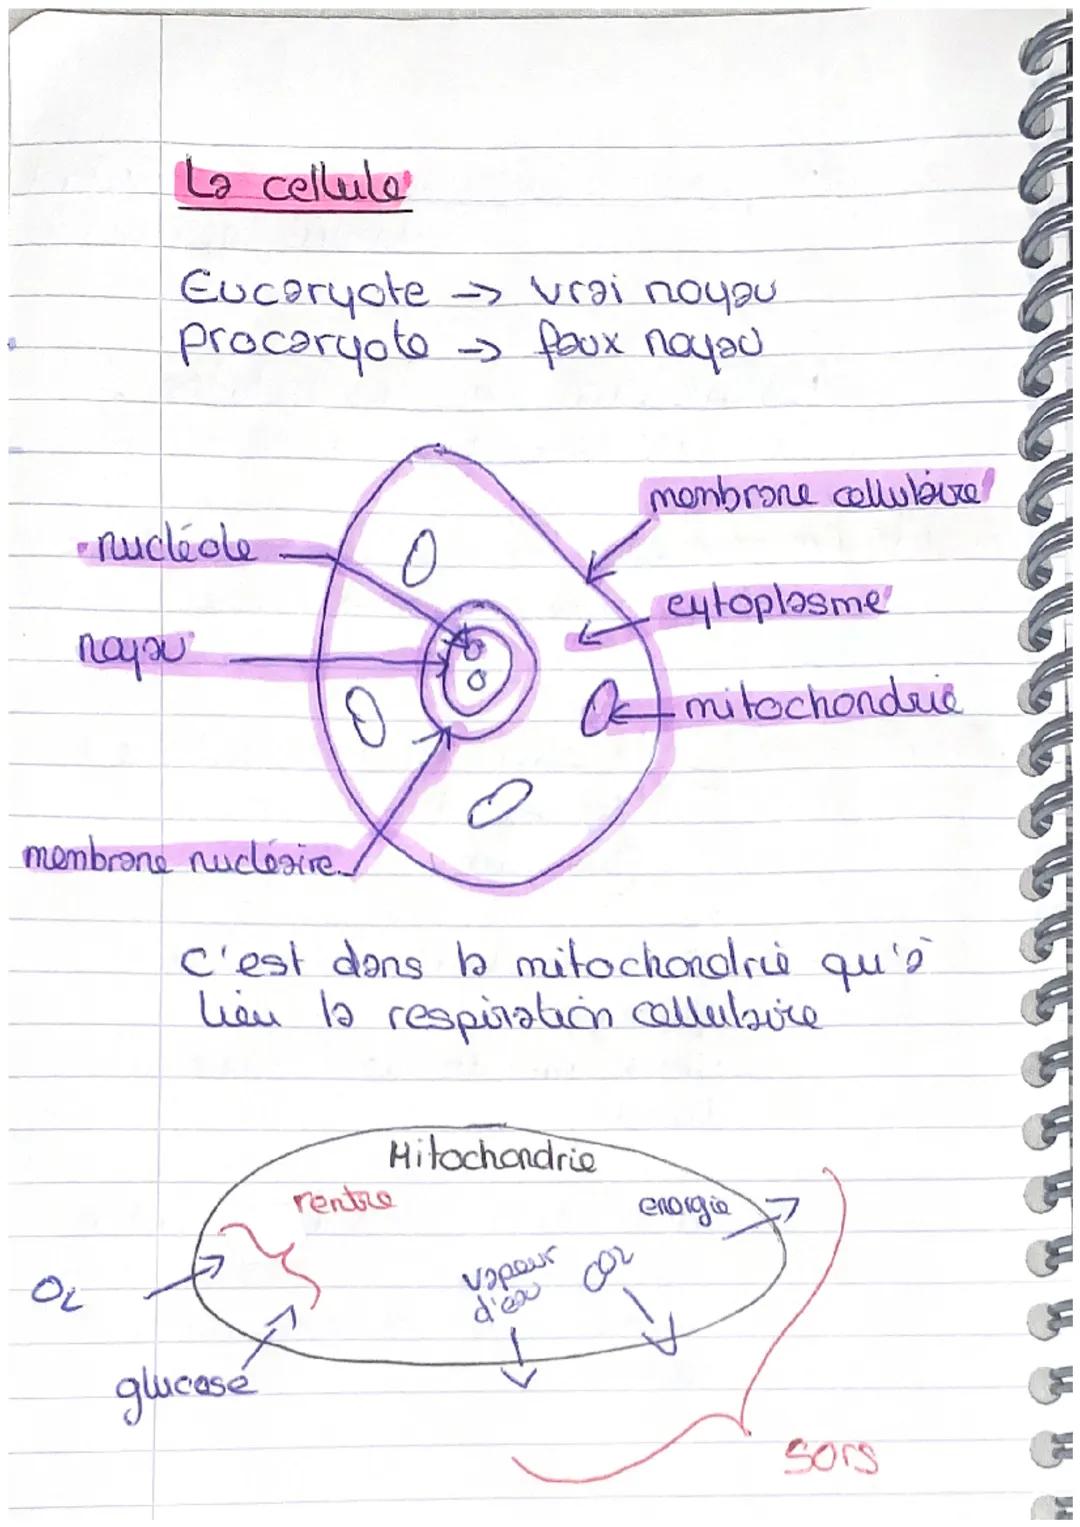 La cellule
Eucaryote → vrai noyau
procaryote → faux noyau
membrane cellulaire
nucléole
cytoplasme
noyau
mitochondrie
membrane nucléaire
c'est dans la mitochondrie qu'a
lieu la respiration cellulaire
Mitochondrie
rentre
energie
O2
vapeur
d'eau
CO2
glucose
sors